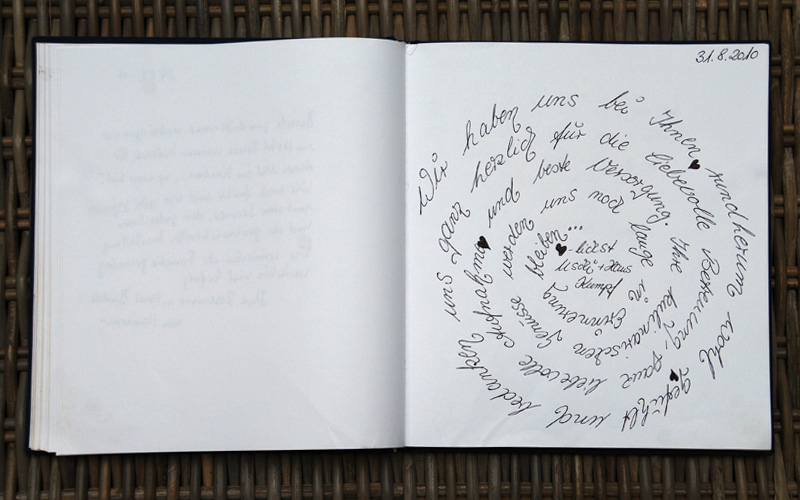 31.8.2010
Wir haben uns bei Ihnen rundherum wohl gefühlt und bedanken uns ganz herzlich für die liebevolle Betreuung, ganz liebevolle und beste Versorgung. Ihre kulinarischen Genüsse werden uns noch lange in Erinnerung bleiben...
-lichst
Uschi + Klaus
Kumpf